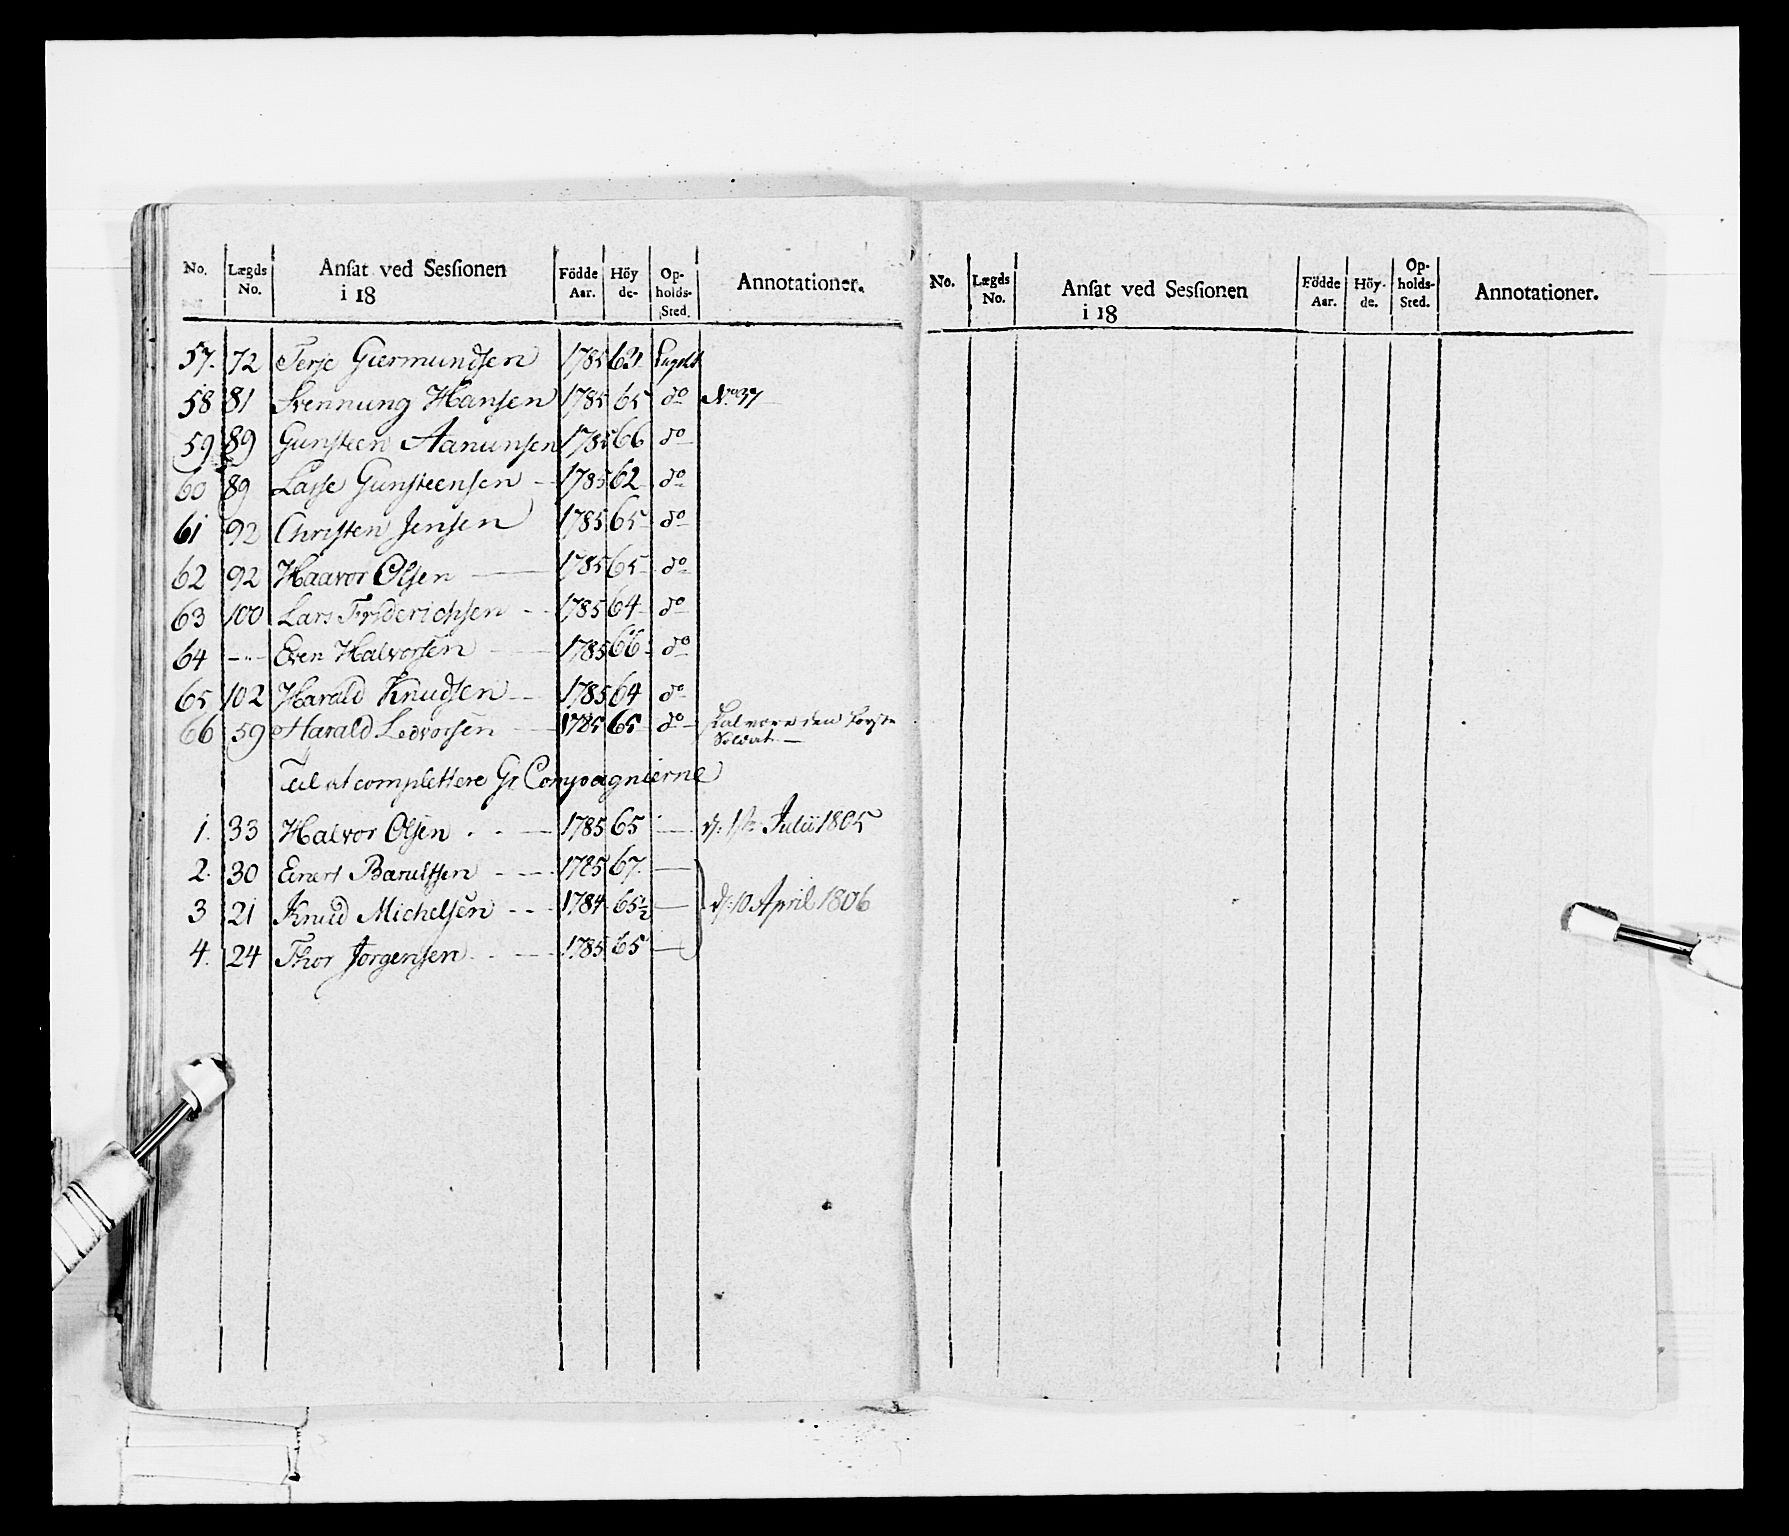 No. Lægds No. Ansat ved Sessionen i 18 Födde Aar. Höy de- Op- holds- Sted. Annotationer.
57. 72 Terje Giermundsen 1785 63
58 81 Svennung Hansen 1785 65 do No 37
59 89 Gunsteen Aanunsen 1785 66 do
60 89 Lasse Gunsteensen - 1785 62 do
61 92 Christen Jensen 1785 65 do
62 92 Haavor Olsen — 1785 65 do
63 100 Lars Friderichsen - - 1785 64 do
64 - - - Even Halvorsen — 1785 66 do
65 102 Harald Knudsen - - 1785 64 do
66 59 Harald Ledvorsen — 1785 65 do den
Soldat —
Til at complettere Gr Compagnierne
1. 33 Halvor Olsen - - — 1785 65 — d: 1ste Julii 1805
2. 30 Einert Barultsen - - - 1785 67. —
3 21 Knud Michelsen - - - 1784 65½ — d: 10 April 1806
4. 24 Thor Jörgensen - - — 1785 65 —
No. Lægds No. Ansat ved Sessionen i 18 Födde Aar. Höy- de. Op- holds- Sted. Annotationer.